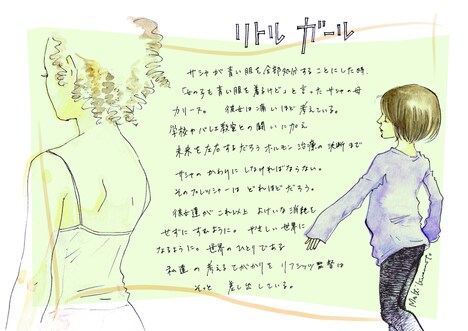 リトル ガール
サシャが青い服を全部処分することにした時、
「女の子も青い服を着るけど」と言ったサシャの母
カリーヌ。 彼女は痛いほど考えている。
学校やバレエ教室との闘いに加え
未来を左右するだろうホルモン治療の決断まで
サシャのかわりにしなければならない。
そのプレッシャーは どれほどだろう。
彼女達がこれ以上 よけいな消耗を
せずに すむように。 やさしい世界に
なるように。世界のひとりである
私達の考えるてがかりを リフシッツ監督は
そっと 差し出している。